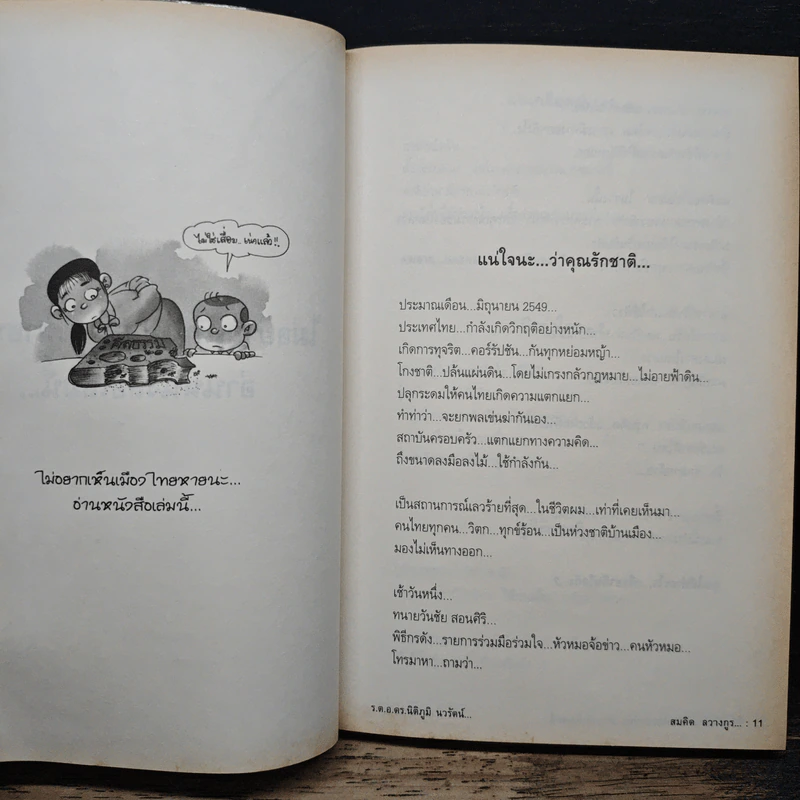 ไม่ใช่เสื่อม..เน่าแล้ว!!.
ศีลธรรม
ไม่อยากเห็นเมืองไทยหายนะ...
อ่านหนังสือเล่มนี้...
แน่ใจนะ...ว่าคุณรักชาติ...
ประมาณเดือน...มิถุนายน 2549...
ประเทศไทย...กำลังเกิดวิกฤติอย่างหนัก...
เกิดการทุจริต...คอร์รัปชัน...กันทุกหย่อมหญ้า...
โกงชาติ...ปล้นแผ่นดิน...โดยไม่เกรงกลัวกฎหมาย...ไม่อายฟ้าดิน...
ปลุกระดมให้คนไทยเกิดความแตกแยก...
ทำท่าว่า...จะยกพลเข่นฆ่ากันเอง...
สถาบันครอบครัว...แตกแยกทางความคิด...
ถึงขนาดลงมือลงไม้...ใช้กำลังกัน...
เป็นสถานการณ์เลวร้ายที่สุด...ในชีวิตผม...เท่าที่เคยเห็นมา...
คนไทยทุกคน...วิตก...ทุกข์ร้อน...เป็นห่วงชาติบ้านเมือง...
มองไม่เห็นทางออก...
เช้าวันหนึ่ง...
ทนายวันชัย สอนศิริ...
พิธีกรดัง...รายการร่วมมือร่วมใจ...หัวหมอจ้อข่าว...คนหัวหมอ...
โทรมาหา...ถามว่า...
ร.ต.อ.ดร.นิติภูมิ นวรัตน์...
สมคิด ลวางกูร... : 11